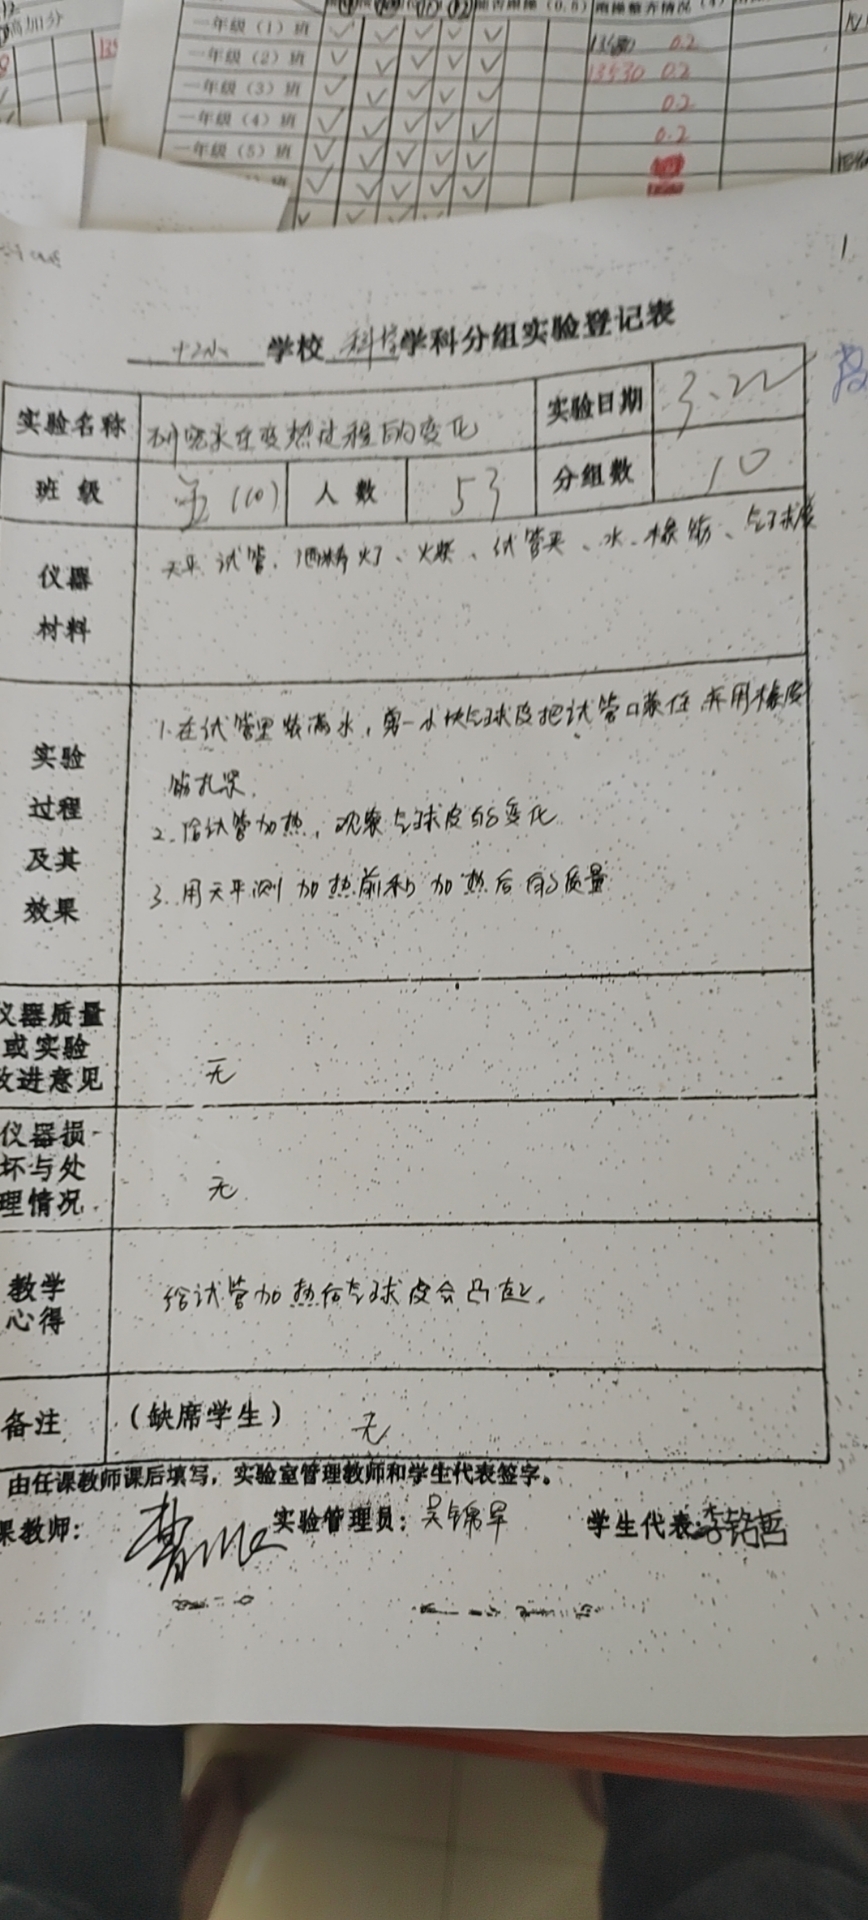 高加分
一年级（1）班
一年级（2）班 0.2
一年级（3）班 13530 0.2
一年级（4）班 0.2
一年级（5）班 0.2
十二小 学校 科学 学科分组实验登记表
实验名称 研究水在变热过程的变化 实验日期 3.22
班级 五（10） 人数 53 分组数 10
仪器
材料
天平、试管、酒精灯、火柴、试管夹、水、橡筋、气球皮
实验
过程
及其
效果
1.在试管里装满水，剪一小块气球皮把试管口蒙住，并用橡皮
筋扎紧.
2.给试管加热，观察气球皮的变化
3.用天平测加热前和加热后的质量
仪器质量
或实验
改进意见
无
仪器损
坏与处
理情况
无
教学
心得
给试管加热后气球皮会凸起.
备注 （缺席学生） 无
由任课教师课后填写，实验室管理教师和学生代表签字。
课教师： 实验管理员： 学生代表：李铭哲